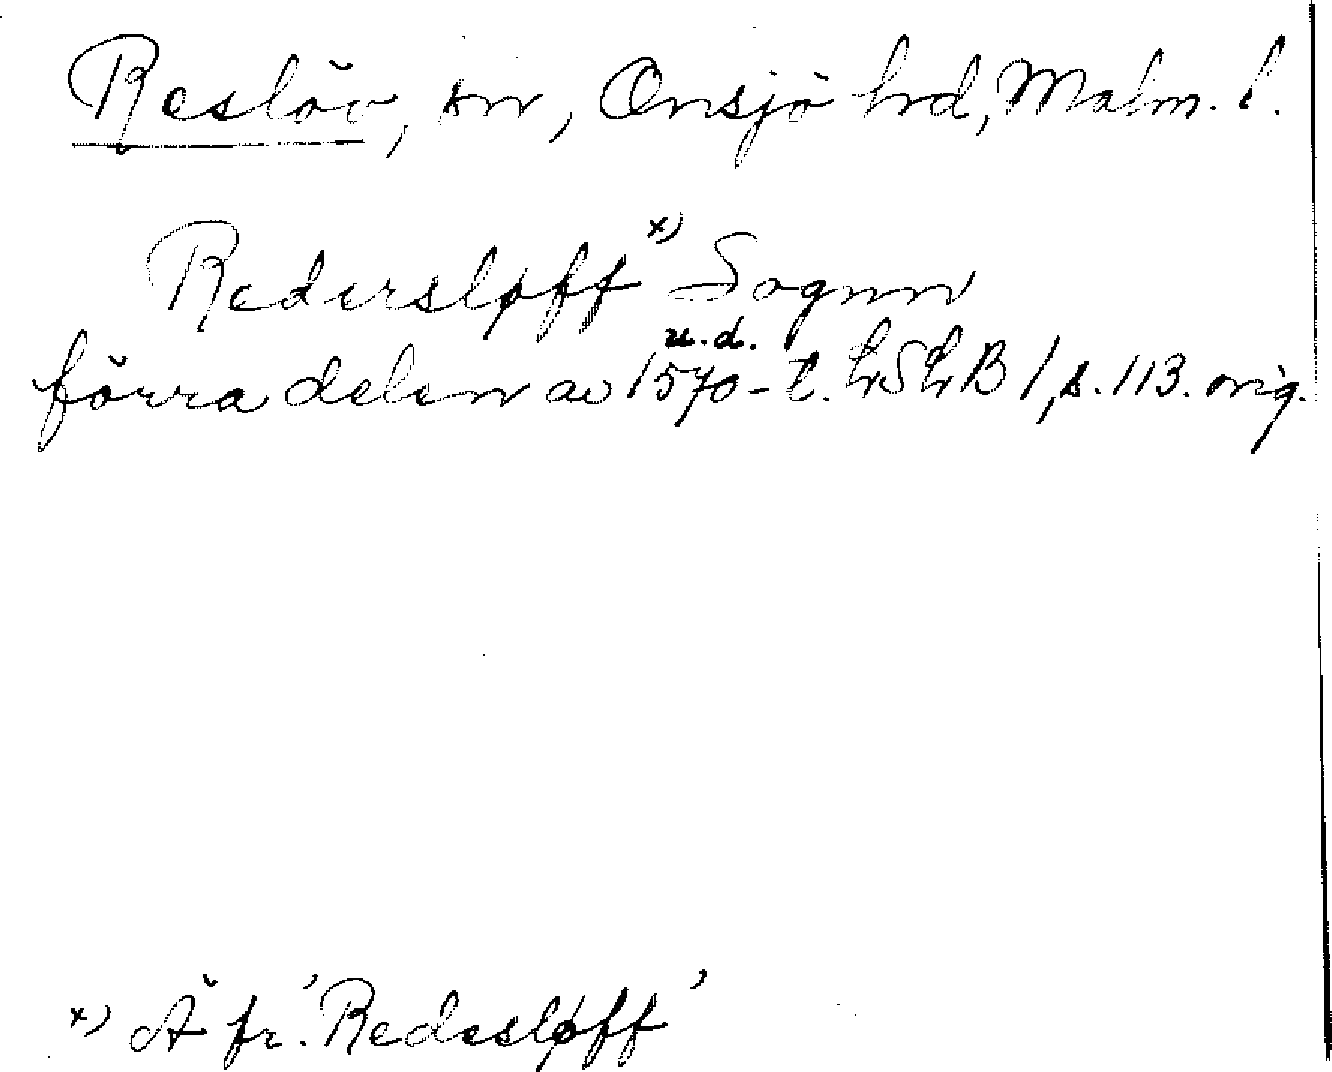 Reslöv, sn, Onsjö hrd, Malm. l.
Redersløff x) Sognn
u.d.
förra delen av 1570-t. LSLB 1, s. 113. orig.
x) Ä fr. 'Redesløff'